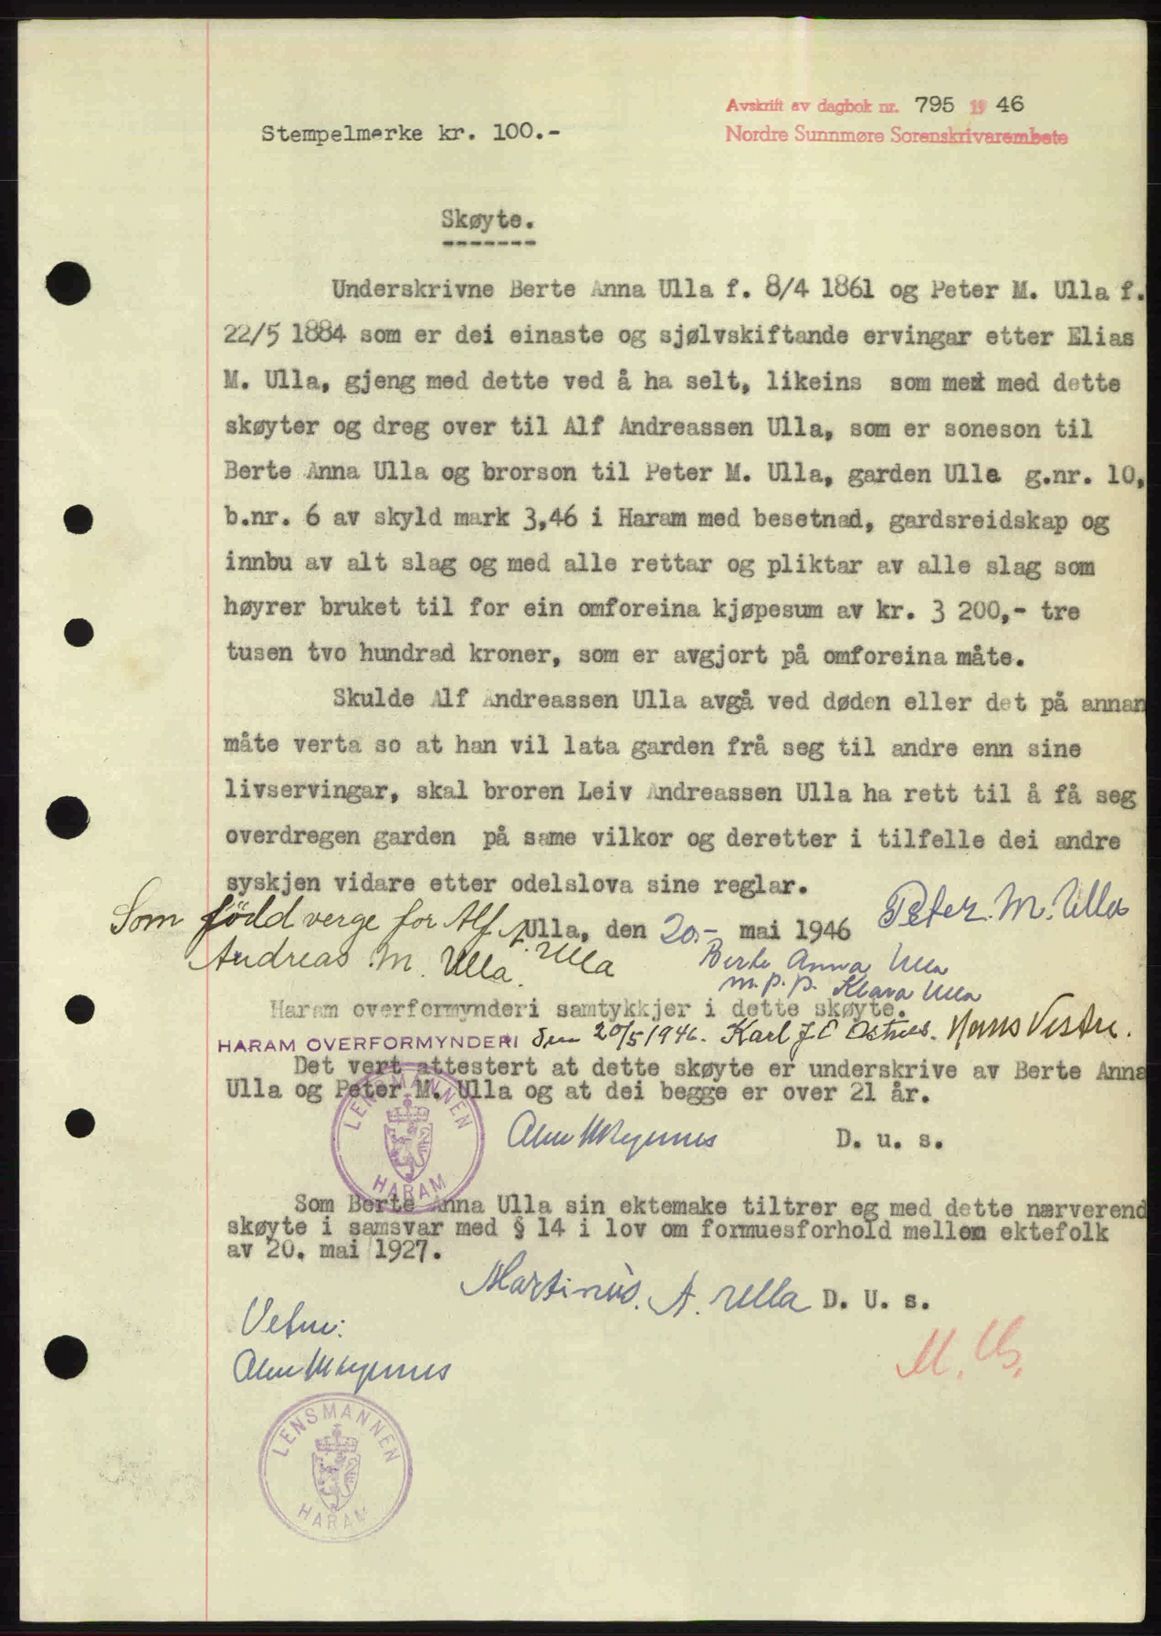 Avskrift av dagbok nr. 795 19 46
Stempelmerke kr. 100.-
Nordre Sunnmøre Sorenskrivarembete
Skøyte.
Underskrivne Berte Anna Ulla f. 8/4 1861 og Peter M. Ulla f.
22/5 1884 som er dei einaste og sjølvskiftande ervingar etter Elias
M. Ulla, gjeng med dette ved å ha selt, likeins som med med dette
skøyter og dreg over til Alf Andreassen Ulla, som er soneson til
Berte Anna Ulla og brorson til Peter M. Ulla, garden Ulla g.nr. 10,
b.nr. 6 av skyld mark 3,46 i Haram med besetnad, gardsreidskap og
innbu av alt slag og med alle rettar og pliktar av alle slag som
høyrer bruket til for ein omforeina kjøpesum av kr. 3 200,- tre
tusen tvo hundrad kroner, som er avgjort på omforeina måte.
Skulde Alf Andreassen Ulla avgå ved døden eller det på annan
måte verta so at han vil lata garden frå seg til andre enn sine
livservingar, skal broren Leiv Andreassen Ulla ha rett til å få seg
overdregen garden på same vilkor og deretter i tilfelle dei andre
syskjen vidare etter odelslova sine reglar.
Som född verge for Alf A. Ulla
Ulla, den 20.- mai 1946
Peter. M. Ulla
Andreas. M. Ulla.
Berte Anna Ulla
m.p.p. Klara Ulla
Haram overformynderi samtykkjer i dette skøyte.
HARAM OVERFORMYNDERI den 20/5 1946. Karl J. Hans
Det vert attestert at dette skøyte er underskrive av Berte Anna
Ulla og Peter M. Ulla og at dei begge er over 21 år.
D. u. s.
LENSMANNEN
HARAM
Som Berte Anna Ulla sin ektemake tiltrer eg med dette nærverend
skøyte i samsvar med § 14 i lov om formuesforhold mellem ektefolk
av 20. mai 1927.
Martinus. A. Ulla D. U. s.
LENSMANNEN
HARAM